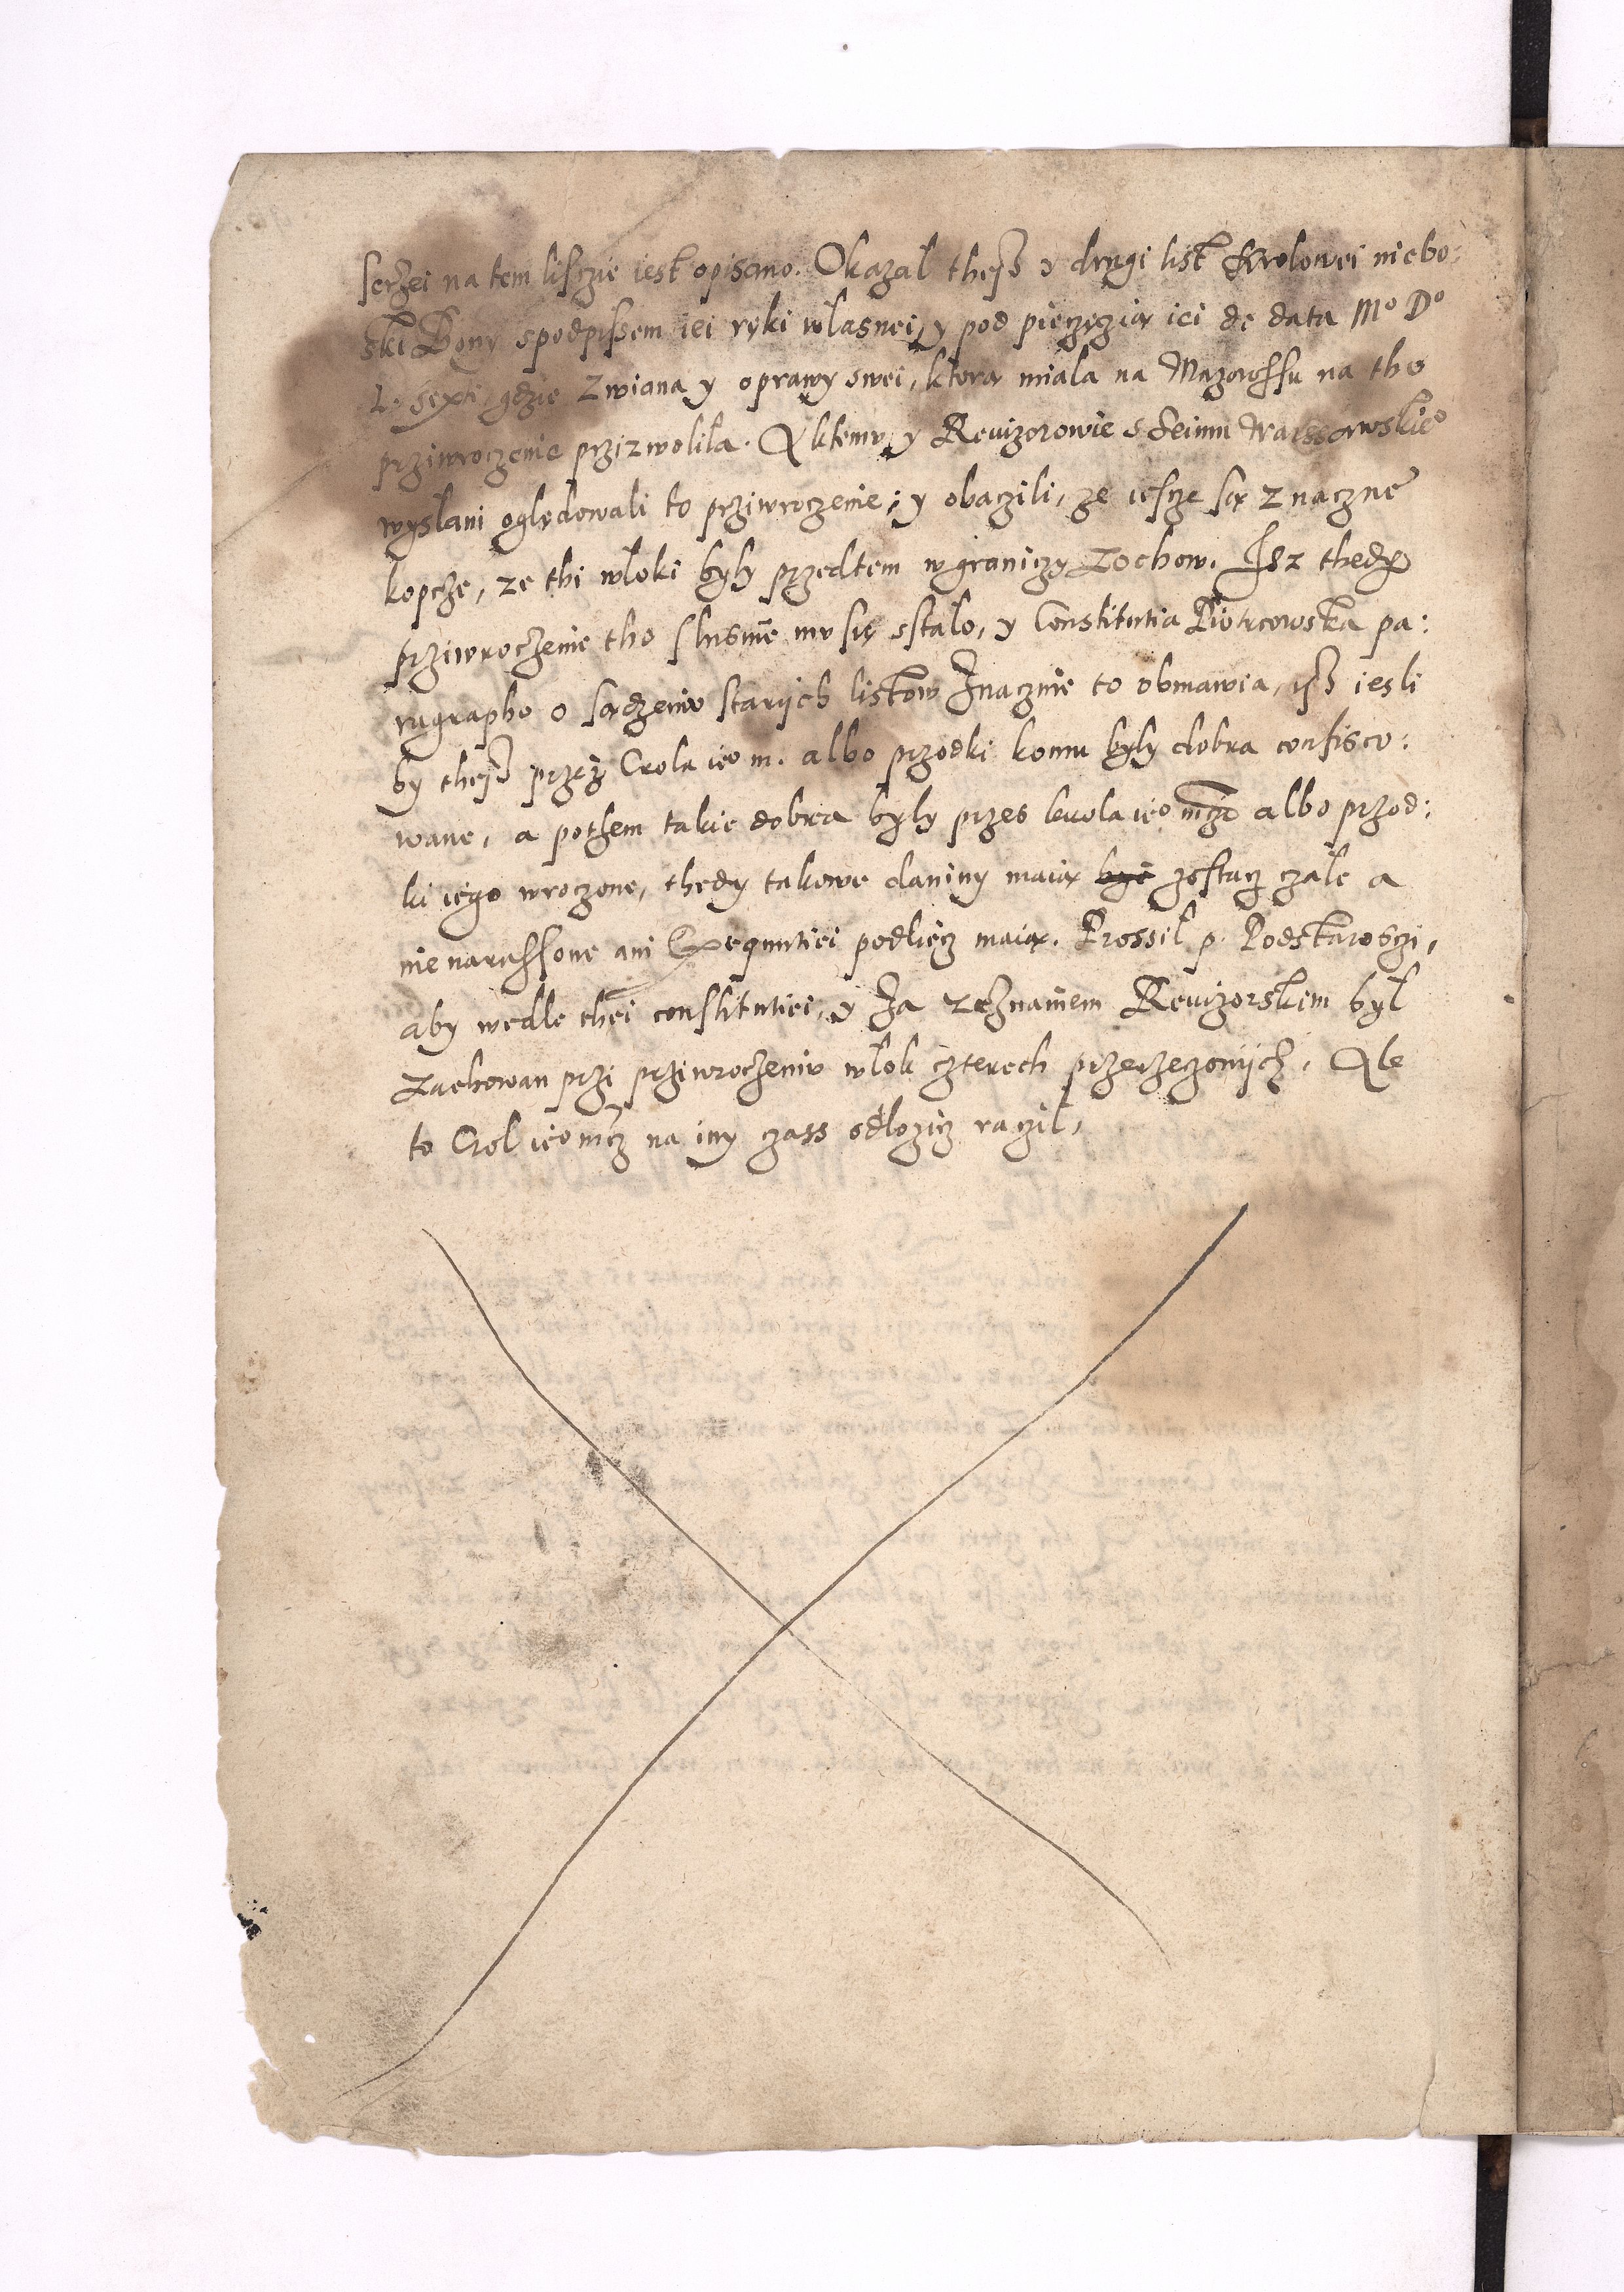 serzei na tem lisczie iest opisano. Okazal thesz y drugi list Krolowei niebo:
ski Bony spodpissem iei ręki wlasnei, y pod pieczęczią iei de data Mo Do
L. sexti, gdzie z wiana y oprawy swei, ktorą miala na Mazowssu na tho
prziwroczenie przizwolila. A ktemu y Rewizorowie s Seimu Warssawskieo
wyslani oględowali to prziwroczenie; y obaczili, ze iescze są znaczne
kopcze, ze thi wloki byly przedtem w graniczy Lochow. Isz thedy
prziwroczenie tho slusnie mu się sstalo, y Constitutia Piotrcowska pa:
ragrapho o sądzeniu starych listow Inacznie to obmawia, isz iesli
by thesz przez Crola ieo m. albo przodki komu byly dobra confisco:
wane, a pothem takie dobra byly przes krola ieo mczi albo przod:
ki iego wroczone, thedy takowe daniny maią bycz zostacz czale a
nie narussone ani Exequutiei podlecz maią. Prossil p. Podstarosczi,
aby wedle thei constitutiei, y za zeznaniem Rewizorskiem byl
zachowan przi prziwroczeniu wlok czterech przerzeczonych. Ale
to Crol ieo mcz na iny czass odlozicz raczil,